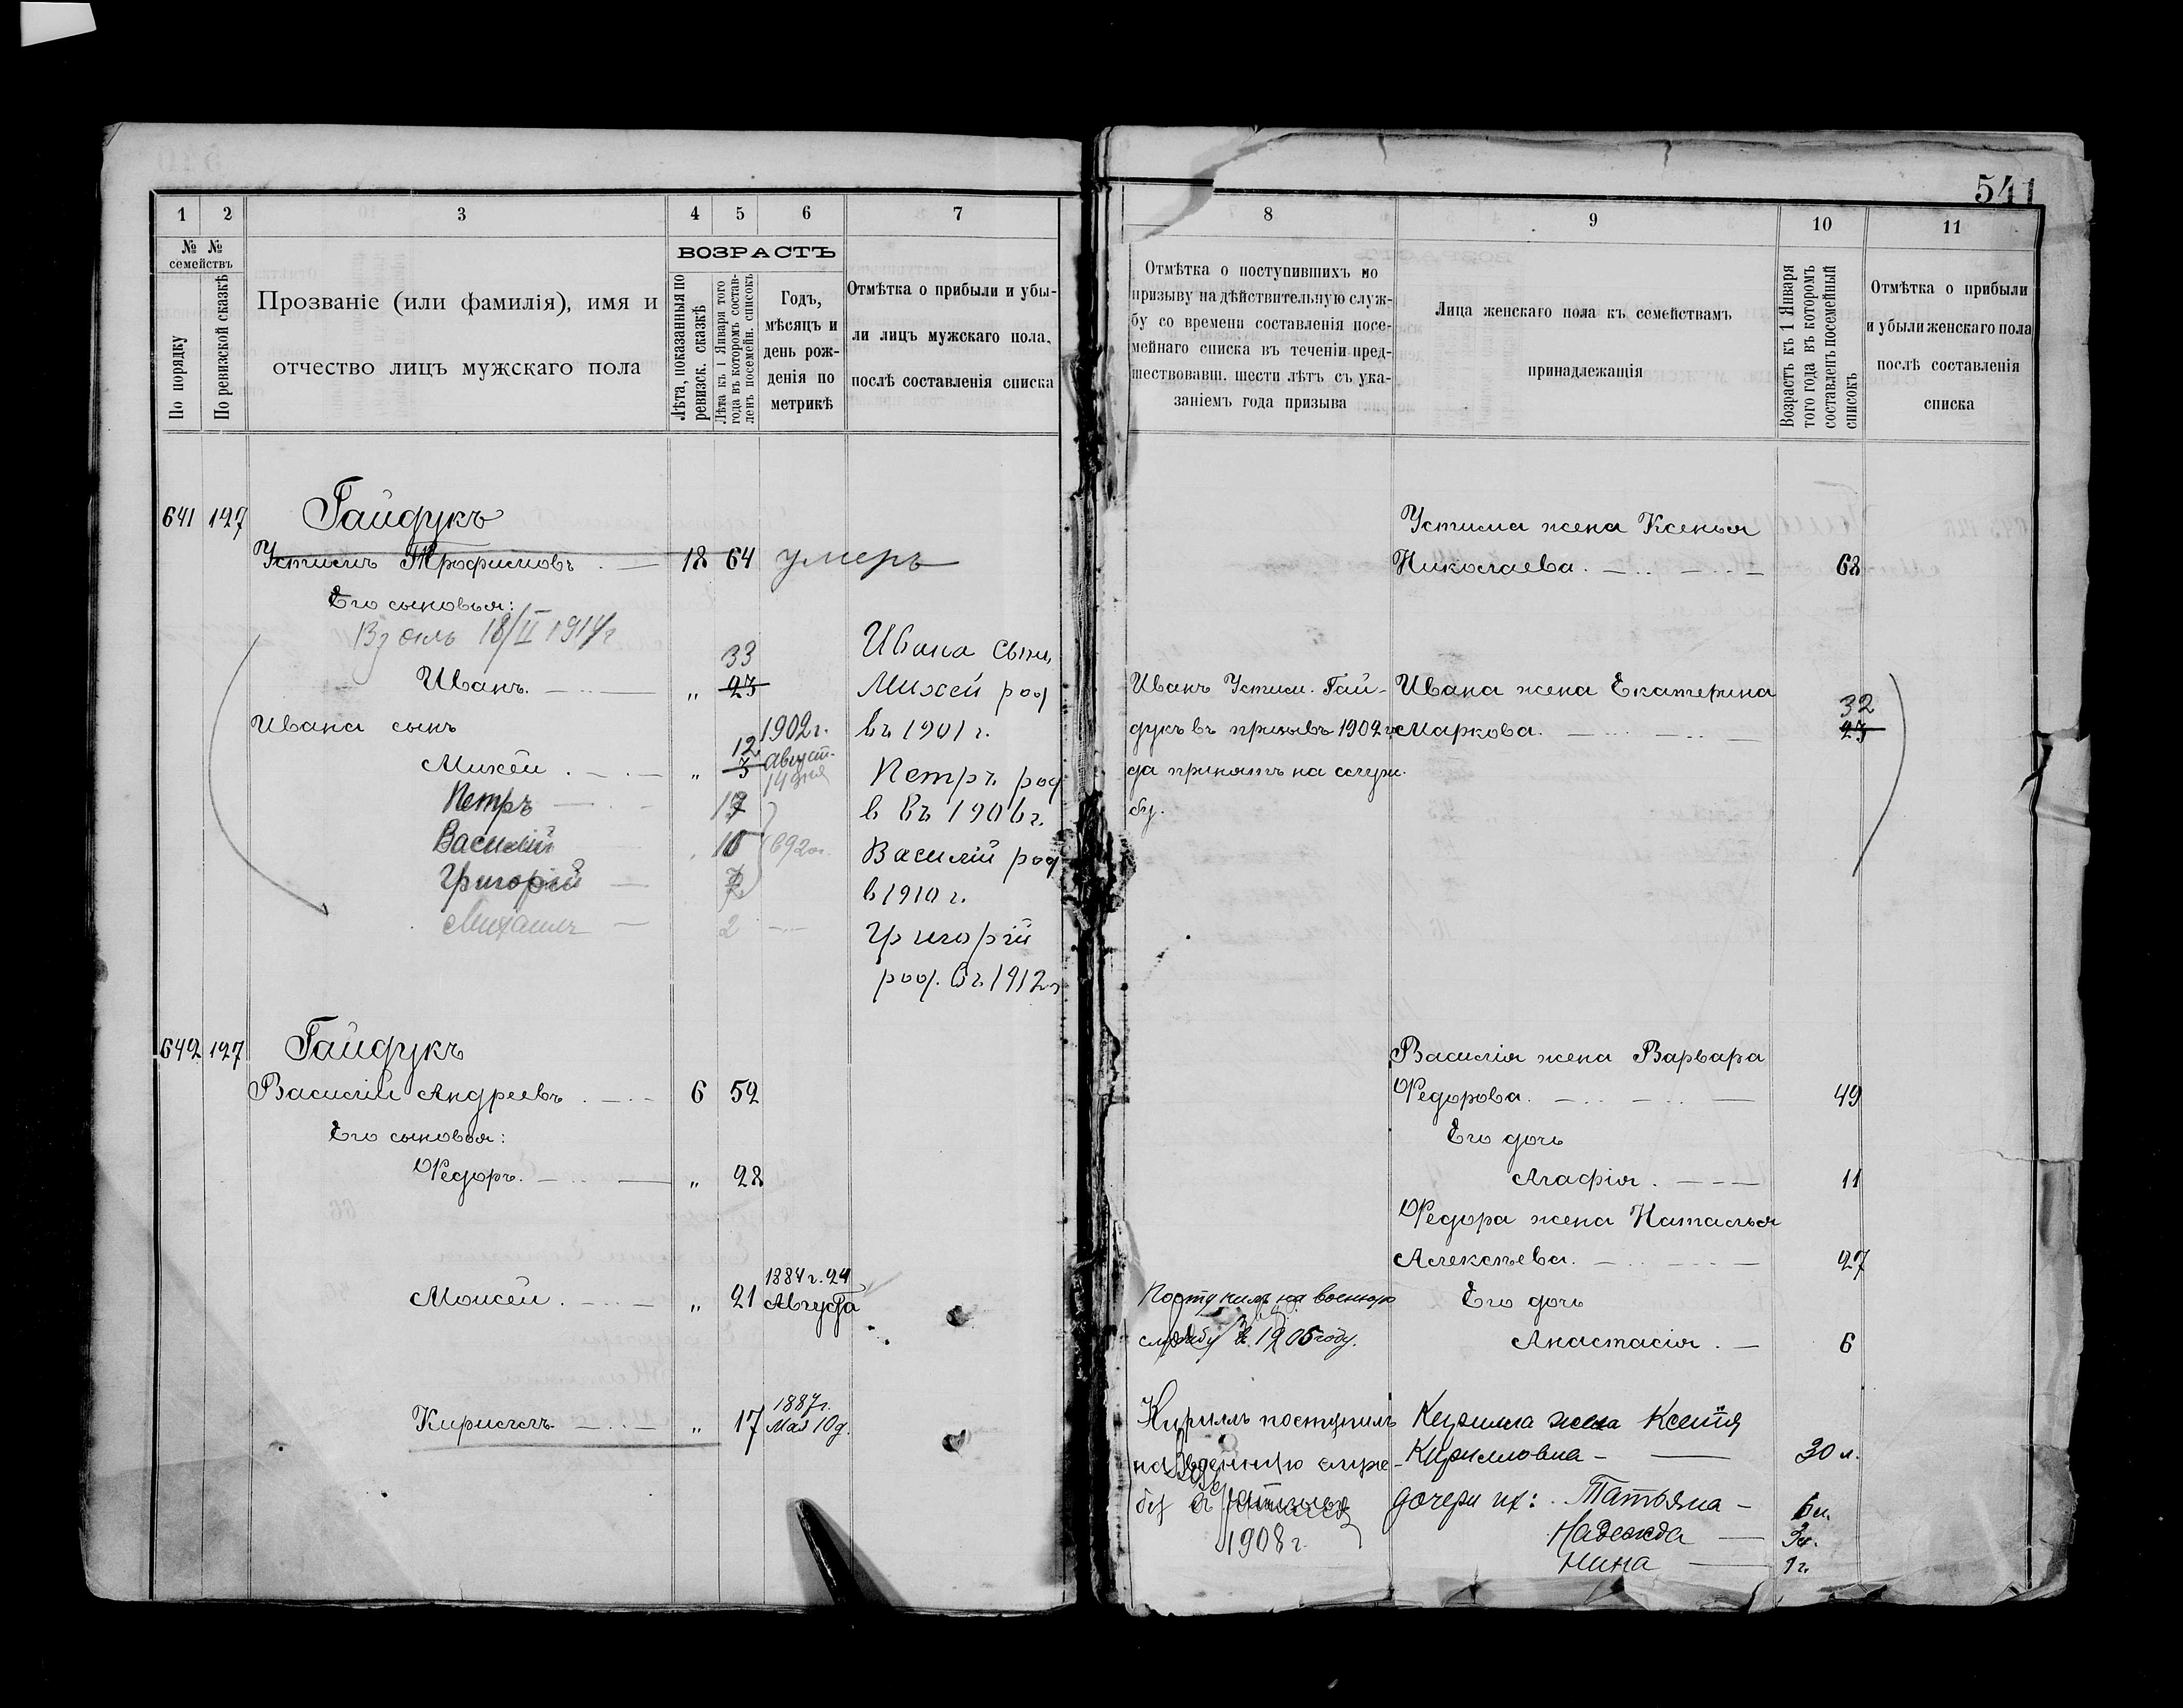 541
1 2 3 4 5 6 7
№ № семействъ
По порядку
По ревизской сказкѣ
Прозваніе (или фамилія), имя и
отчество лицъ мужскаго пола
ВОЗРАСТЪ
Лѣта, показанныя по
ревизск. сказкѣ
Лѣта къ 1 Января того
года въ которомъ состав-
ленъ посемейн. списокъ
Годъ,
мѣсяцъ и
день рож-
денія по
метрикѣ
Отмѣтка о прибыли и убы-
ли лицъ мужскаго пола,
послѣ составленія списка
641 127 Гайдукъ
Устимъ Трофимовъ 18 64 умеръ
Его сыновья:
18/II 1914 г
33
Иванъ. „ 23
Ивана сынъ
Михей „ 12 3
1902 г.
Август.
14 дня
Петръ
Василій
Григорій
Михаилъ 2
Ивана сынъ
Михей род
въ 1901 г.
Петръ род
в въ 1906 г.
Василій род
в 1910 г.
Григорій
род. въ 1912 г
642 127 Гайдукъ
Василій Андреевъ 6 52
Его сыновья:
Федоръ. „ 28
Моисей „ 21 1884 г. 24
Августа
Кириллъ „ 17 1887 г.
Мая 10 д.
8 9 10 11
Отмѣтка о поступившихъ по
призыву на дѣйствительную служ-
бу со времени составленія посе-
мейнаго списка въ теченіи пред-
шествовавш. шести лѣтъ съ ука-
заніемъ года призыва
Лица женскаго пола къ семействамъ
принадлежащія
Возрастъ къ 1 Января
того года въ которомъ
составленъ посемейный
списокъ
Отмѣтка о прибыли
и убыли женскаго пола
послѣ составленія
списка
Устима жена Ксенья
Николаева. 68
Иванъ Устим. Гай-
дукъ въ призывъ 1902 го
да принятъ на служ.
бу.
Ивана жена Екатерина
Маркова. 32 23
Василія жена Варвара
Федорова. 49
Его дочь
Агафія. 11
Федора жена Наталья
Алексѣева. 27
Его дочь
Анастасія. 6
Поступилъ на военную
службу в 1905 году.
Кириллъ поступилъ
на военную служ-
бу
1908 г.
Кирилла жена Ксенія
Кирилловна - 30 л.
дочери их: Татьяна - 6 л.
Надежда 3 г.
Нина 1 г.